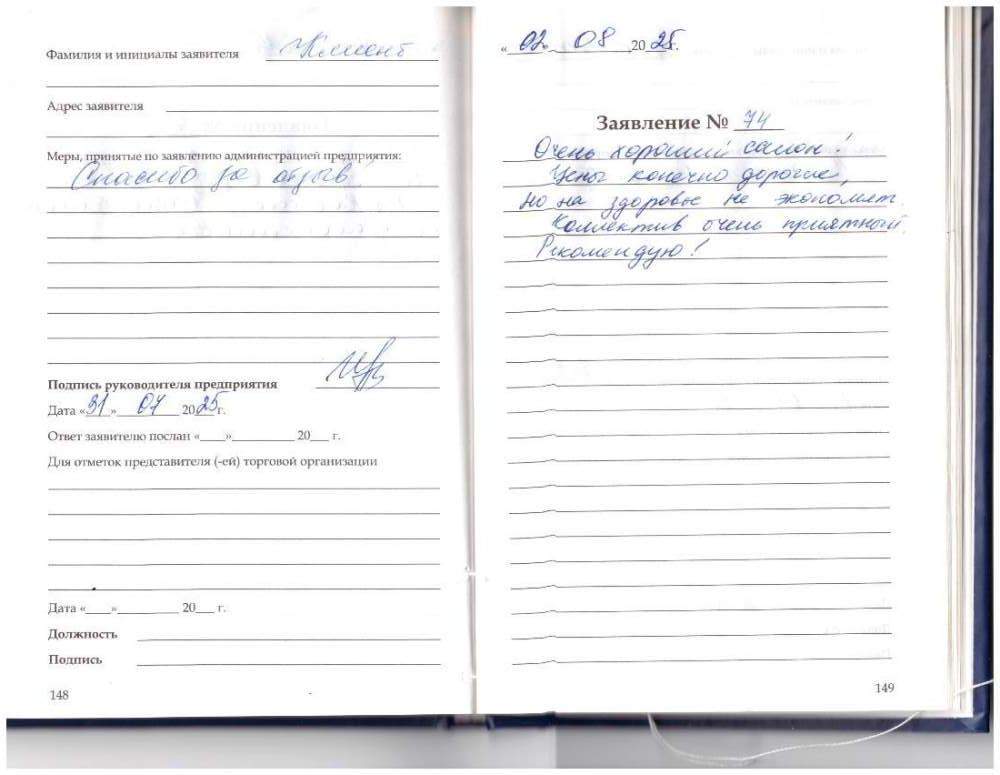 Фамилия и инициалы заявителя Клиент
Адрес заявителя
Меры, принятые по заявлению администрацией предприятия:
Спасибо за отзыв
Подпись руководителя предприятия
Дата «31» 07 2025г.
Ответ заявителю послан «___»_________ 20__ г.
Для отметок представителя (-ей) торговой организации
Дата «___»_________ 20__ г.
Должность
Подпись
148
«02» 08 2025г.
Заявление № 74
Очень хороший салон!
Цены конечно дорогие,
но на здоровье не экономят.
Коллектив очень приятный.
Рекомендую!
149